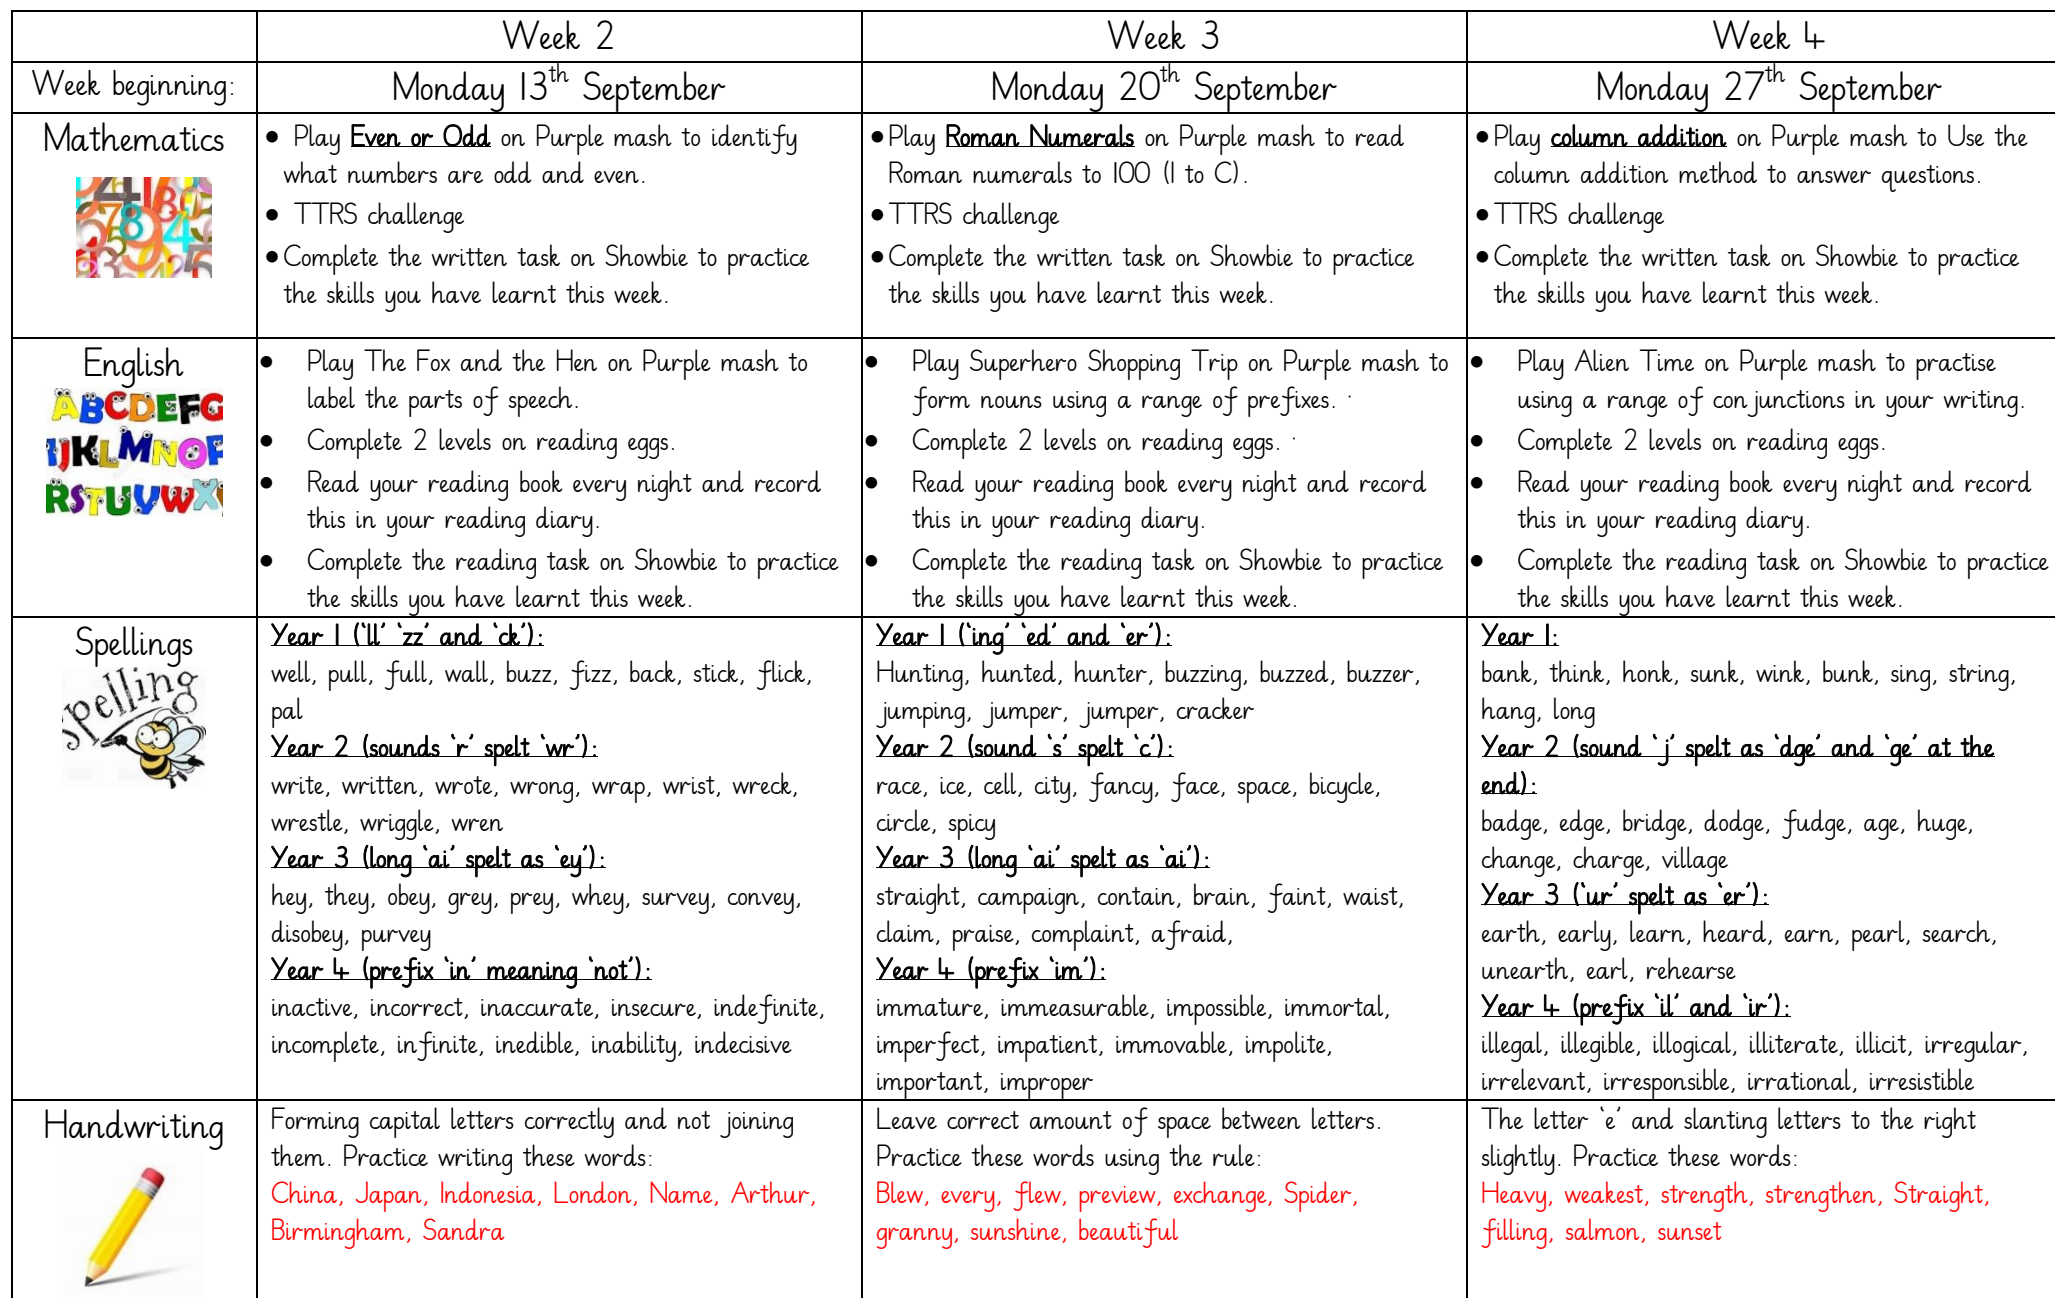 Week 2
Week 3
Week 4
Week beginning:
Monday 13th September
Monday 20th September
Monday 27th September
Mathematics
• Play Even or Odd on Purple mash to identify
what numbers are odd and even.
• TTRS challenge
• Complete the written task on Showbie to practice
the skills you have learnt this week.
• Play Roman Numerals on Purple mash to read
Roman numerals to 100 (I to C).
• TTRS challenge
• Complete the written task on Showbie to practice
the skills you have learnt this week.
• Play column addition on Purple mash to Use the
column addition method to answer questions.
• TTRS challenge
• Complete the written task on Showbie to practice
the skills you have learnt this week.
English
ABCDEFG
IJKLMNOP
RSTUVWX
• Play The Fox and the Hen on Purple mash to
label the parts of speech.
• Complete 2 levels on reading eggs.
• Read your reading book every night and record
this in your reading diary.
• Complete the reading task on Showbie to practice
the skills you have learnt this week.
• Play Superhero Shopping Trip on Purple mash to
form nouns using a range of prefixes. ·
• Complete 2 levels on reading eggs. ·
• Read your reading book every night and record
this in your reading diary.
• Complete the reading task on Showbie to practice
the skills you have learnt this week.
• Play Alien Time on Purple mash to practise
using a range of conjunctions in your writing.
• Complete 2 levels on reading eggs.
• Read your reading book every night and record
this in your reading diary.
• Complete the reading task on Showbie to practice
the skills you have learnt this week.
Spellings
Spelling
Year 1 (‘ll’ ‘zz’ and ‘ck’):
well, pull, full, wall, buzz, fizz, back, stick, flick,
pal
Year 2 (sounds ‘r’ spelt ‘wr’):
write, written, wrote, wrong, wrap, wrist, wreck,
wrestle, wriggle, wren
Year 3 (long ‘ai’ spelt as ‘ey’):
hey, they, obey, grey, prey, whey, survey, convey,
disobey, purvey
Year 4 (prefix ‘in’ meaning ‘not’):
inactive, incorrect, inaccurate, insecure, indefinite,
incomplete, infinite, inedible, inability, indecisive
Year 1 (‘ing’ ‘ed’ and ‘er’):
Hunting, hunted, hunter, buzzing, buzzed, buzzer,
jumping, jumper, jumper, cracker
Year 2 (sound ‘s’ spelt ‘c’):
race, ice, cell, city, fancy, face, space, bicycle,
circle, spicy
Year 3 (long ‘ai’ spelt as ‘ai’):
straight, campaign, contain, brain, faint, waist,
claim, praise, complaint, afraid,
Year 4 (prefix ‘im’):
immature, immeasurable, impossible, immortal,
imperfect, impatient, immovable, impolite,
important, improper
Year 1:
bank, think, honk, sunk, wink, bunk, sing, string,
hang, long
Year 2 (sound ‘j’ spelt as ‘dge’ and ‘ge’ at the
end):
badge, edge, bridge, dodge, fudge, age, huge,
change, charge, village
Year 3 (‘ur’ spelt as ‘er’):
earth, early, learn, heard, earn, pearl, search,
unearth, earl, rehearse
Year 4 (prefix ‘il’ and ‘ir’):
illegal, illegible, illogical, illiterate, illicit, irregular,
irrelevant, irresponsible, irrational, irresistible
Handwriting
Forming capital letters correctly and not joining
them. Practice writing these words:
China, Japan, Indonesia, London, Name, Arthur,
Birmingham, Sandra
Leave correct amount of space between letters.
Practice these words using the rule:
Blew, every, flew, preview, exchange, Spider,
granny, sunshine, beautiful
The letter ‘e’ and slanting letters to the right
slightly. Practice these words:
Heavy, weakest, strength, strengthen, Straight,
filling, salmon, sunset